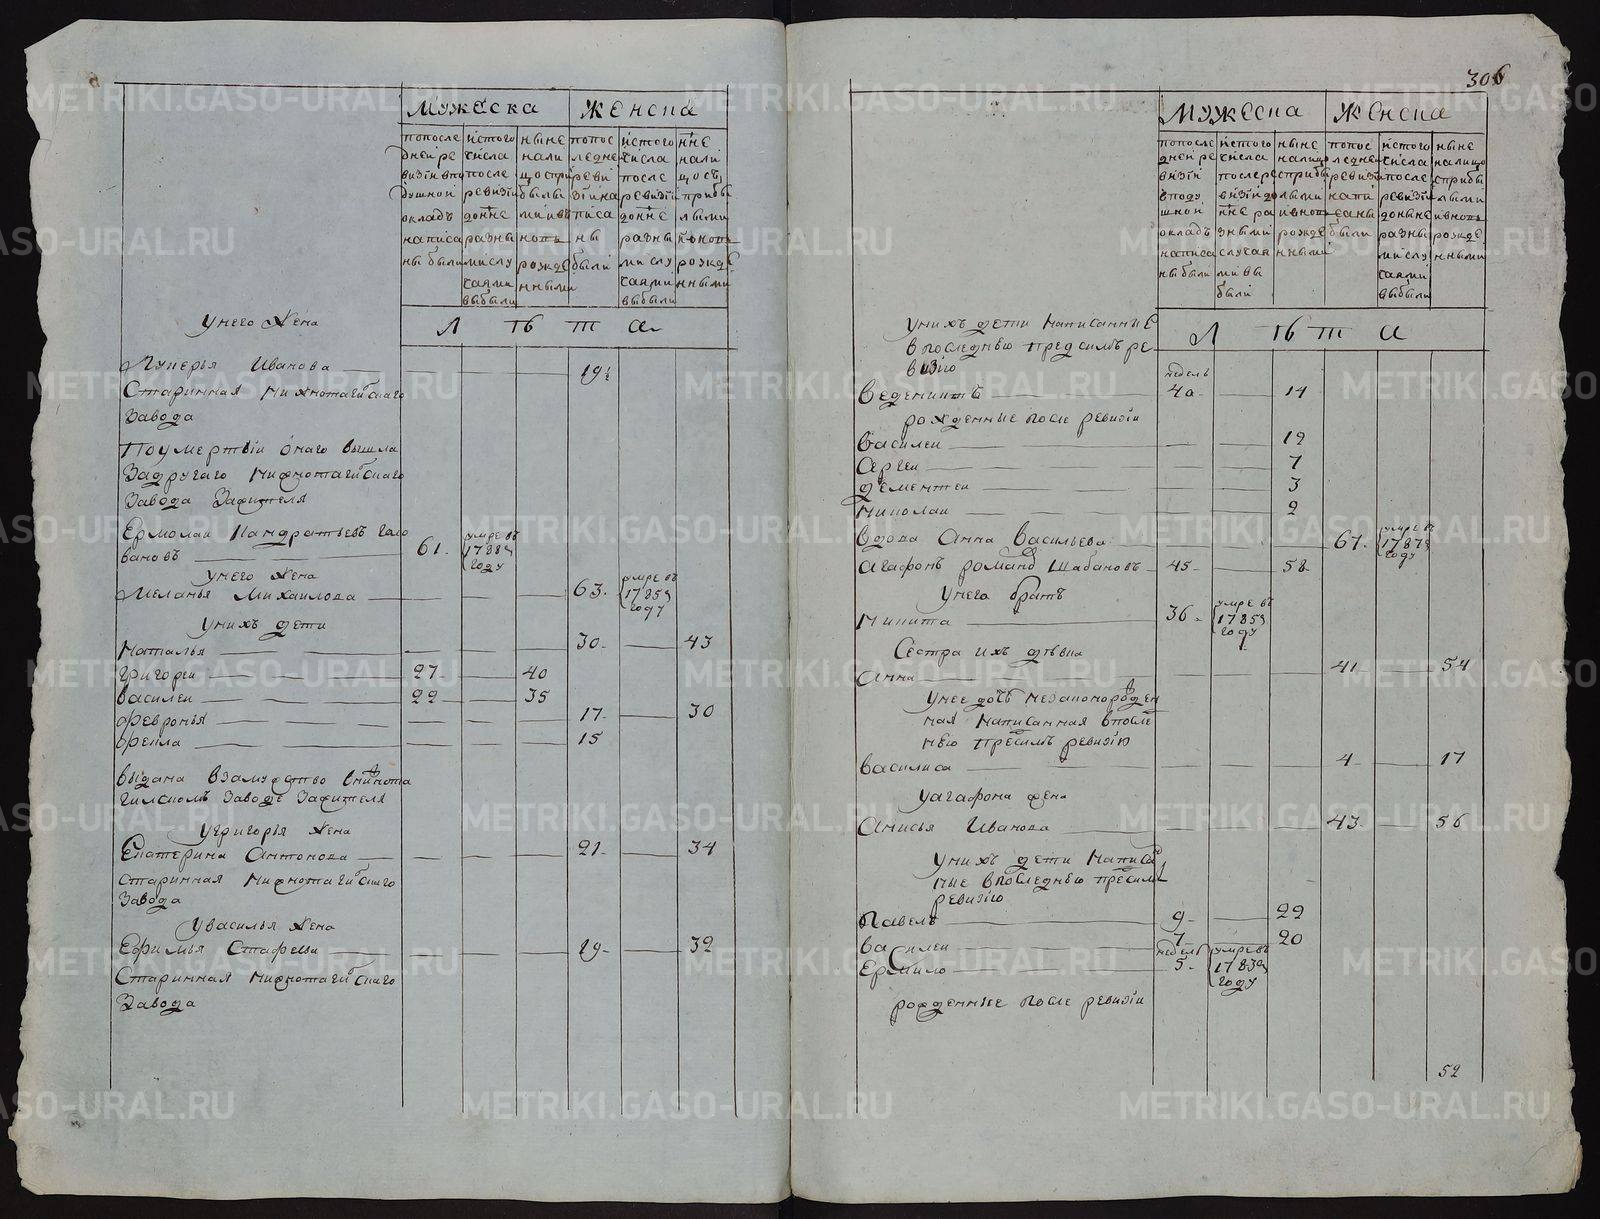 Мужеска Женска
попосле дней ре визій впо душной окладъ написа ны были
истого числа после ревизій донне разны мислу чаями выбыли
ныне нали цоспри былы мии въ новь рожде нными
попос ледне реви зій на писа ны были
истого числа после ревизій донне разны мислу чаями выбыли
нне нали цосъ прибы лыми ивновь рожде нными
Л ѣ т а
унего жена
Лукерья Иванова 19
Старинная Нижнотагилскаго
Завода
По умертвіи онаго вышла
Задругаго Нижнотагилскаго
Завода Зажителя
Ермолаи Кандратьевъ Голо
вановъ 61. умре въ 1788 году
унего жена
Меланья Михаилова 63. умре въ 1785 году
унихъ дети
Наталья 30. 43
Григореи 27 40
Василеи 22 35
Февронья 17. 30
Фекла 15
Выдана взамужство внижнота
гилскомъ Заводе Зажителя
Угригорья жена
Екатерина Антонова 21. 34
старинная Нижнотагилскаго
Завода
Увасилья жена
Ефимья Стафеи 19. 32
Старинная нижнотагилскаго
Завода
306
Мужеска Женска
попосле дней ре визій вподу шной окладъ написа ны были
истого числа послере визій до нне ра зными случая ми вы были
ныне налицо сприбы лыми ивновь рожде нными
попос ледней ревизій напи саны были
истого числа после ревизій доныне разны мислу чаями выбыли
ныне налицо сприбы лыми ивновь рожде нными
Л ѣ т а
унихъ дети написанные
впоследнюю предсимъ ре
визію
Веденихтъ недель 40 14
рожденные после ревизіи
Василеи 12
Сергеи 7
Дементеи 3
Николаи 2
вдова Анна Васильева 67. умре въ 1787 году
Агафонъ романо Шабановъ 45 58
Унего братъ
Никита 36 умре въ 1785 году
Сестра ихъ девка
Анна 41 54
Унее дочь незаконорожден
ная написанная впосле
нюю пресимъ ревизію
Василиса 4 17
Уагафона жена
Анисья Иванова 43 56
Унихъ дети написа
ные впоследнюю пресимъ
ревизію
Павелъ 9 22
Василеи 7 20
Ермило недель 5 умре въ 1783 году
рожденные после ревизіи
52
METRIKI.GASO-URAL.RU